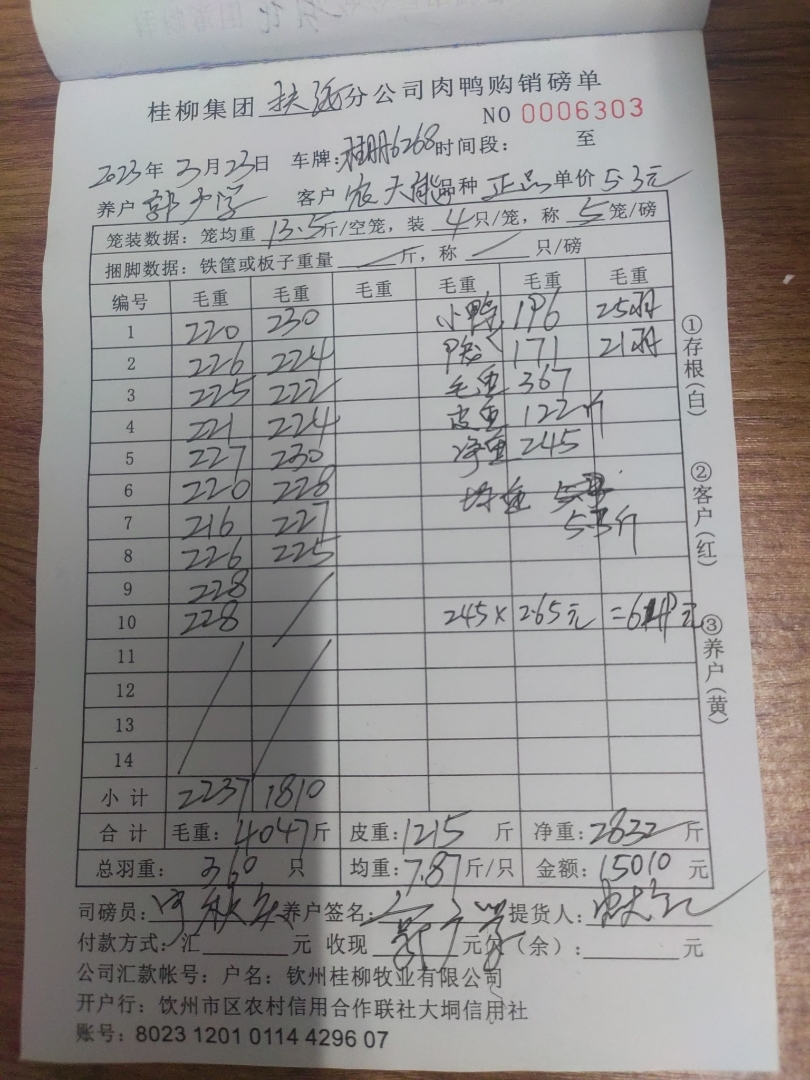 桂柳集团 分公司肉鸭购销磅单
NO 0006303
2023年3月23日 车牌: 6268 时间段: 至
养户 客户 农天能 品种 正品 单价 5.3元
笼装数据: 笼均重 13.5 斤/空笼, 装 4 只/笼, 称 5 笼/磅
捆脚数据: 铁筐或板子重量 / 斤, 称 / 只/磅
编号 毛重 毛重 毛重 毛重 毛重 毛重
1 220 230 小鸭 196 25羽
2 226 224 171 21羽
3 225 222 毛重 367
4 221 224 皮重 122斤
5 227 230 净重 245
6 220 228 均重
7 216 227 5.3斤
8 226 225
9 228
10 228 245 × 2.65元 = 元
11
12
13
14
小计 2237 1810
合计 毛重: 4047 斤 皮重: 1215 斤 净重: 2832 斤
总羽重: 360 只 均重: 7.87 斤/只 金额: 15010 元
司磅员: 养户签名: 提货人:
付款方式: 汇 元 收现 元 欠(余): 元
公司汇款帐号: 户名: 钦州桂柳牧业有限公司
开户行: 饮州市区农村信用合作联社大垌信用社
账号: 8023 1201 0114 4296 07
①存根(白)
②客户(红)
③养户(黄)